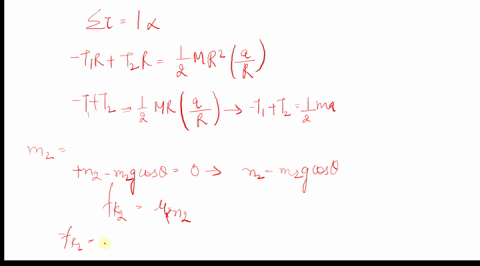 Στ = Iα
-T₁R + T₂R = 1/2 MR² (a/R)
-T₁+T₂ = 1/2 MR (a/R) → -T₁+T₂ = 1/2 ma
m₂ =
+n₂ - m₂gcosθ = 0 → n₂ - m₂gcosθ
fk₂ = μₖn₂
-fk₂ -